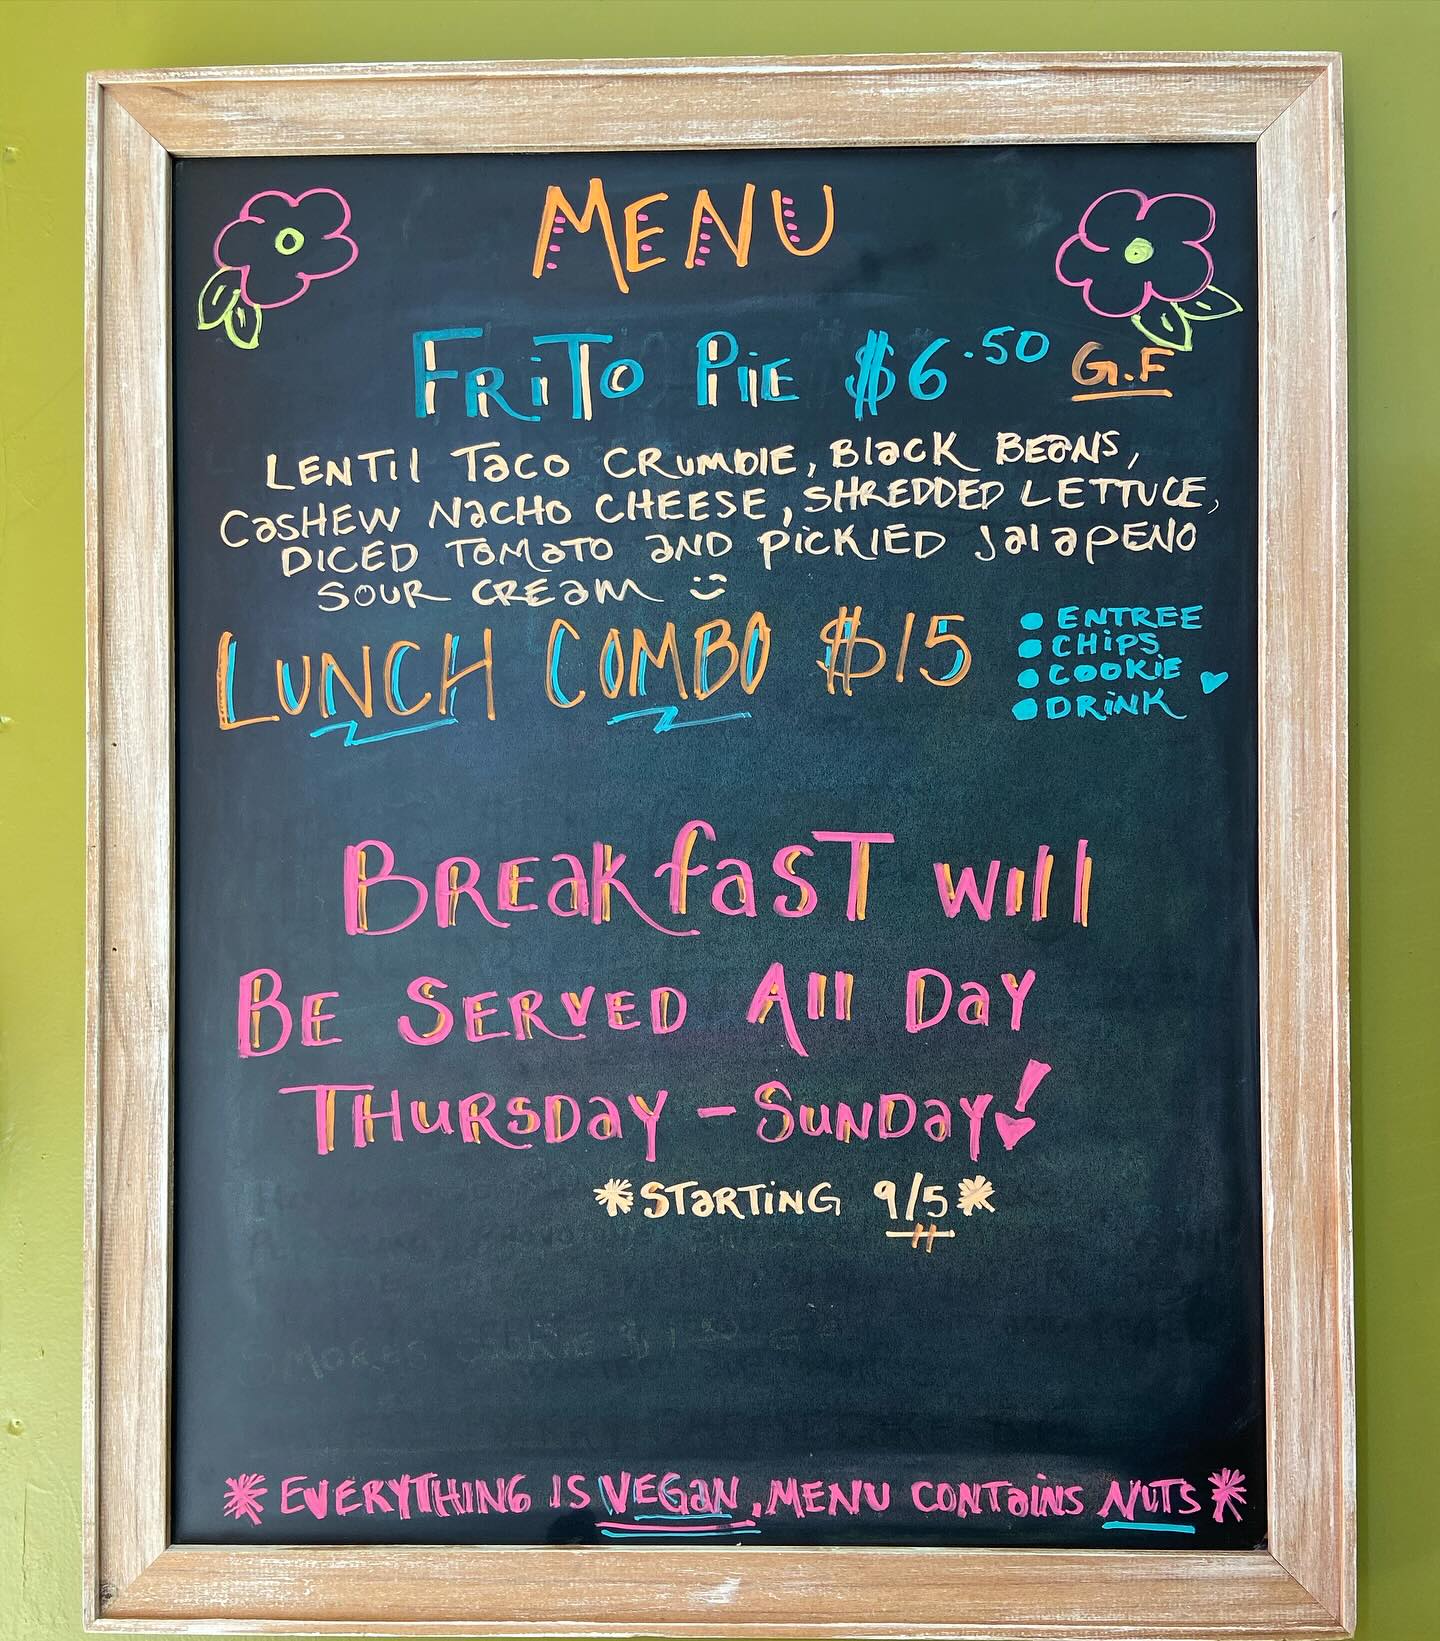 MENU
FRiTO PiE $6.50 G.F
LENTIL TaCO CRUMBLE, BLaCK BEaNS,
CaSHEW NaCHO CHEESE, SHREDDED LETTUCE,
DICED TOMaTO aND PiCKLED JaLaPENO
SOUR CREaM
LUNCH COMBO $15
• ENTREE
• CHiPS
• COOKiE
• DRiNK
BREaKfaST WiLL
BE SERVED ALL DaY
THURSDaY - SUNDaY!
*STaRTiNG 9/5*
* EVERYTHING IS VEGaN, MENU CONTaiNS NUTS *